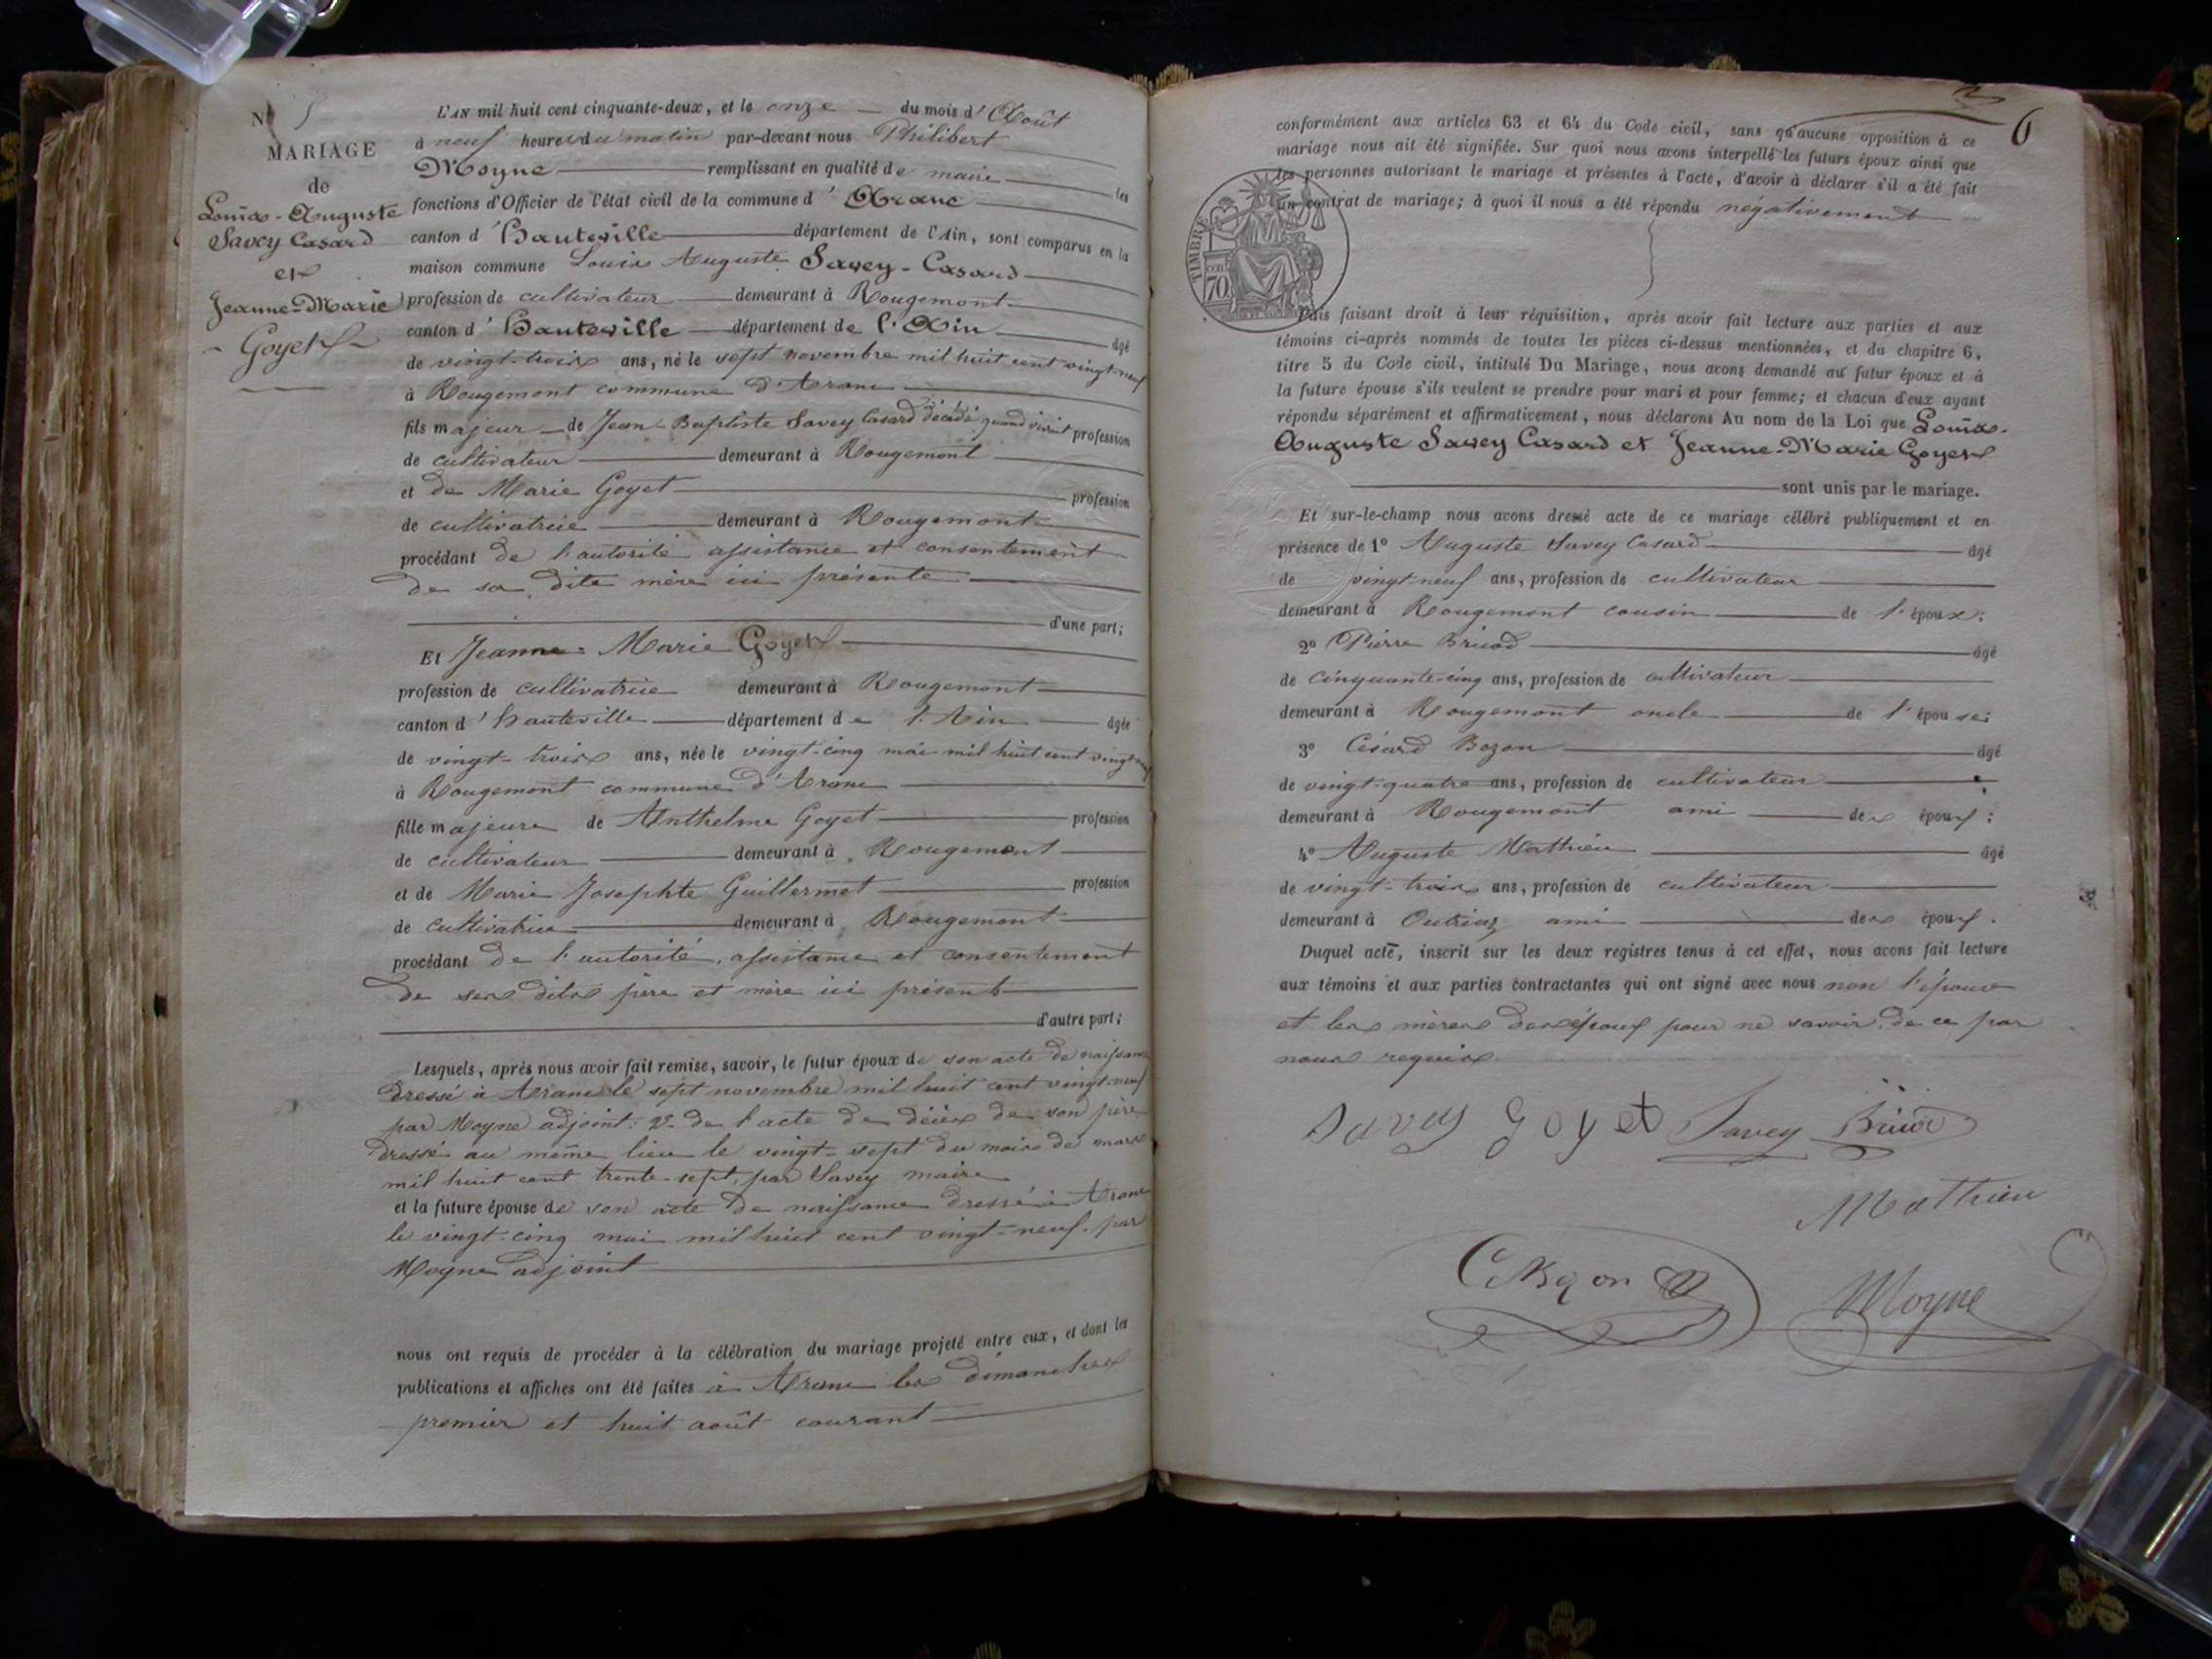 N° 5
MARIAGE
de
Louis-Auguste
Savey Casard
et
Jeanne-Marie
Goyet
L'AN mil huit cent cinquante-deux, et le onze du mois d'Août
à neuf heures du matin par-devant nous Philibert
Moyne remplissant en qualité de maire les
fonctions d'Officier de l'état civil de la commune d'Aranc
canton d'Hauteville département de l'Ain, sont comparus en la
maison commune Louis Auguste Savey-Casard
profession de cultivateur demeurant à Rougemont
canton d'Hauteville département de l'Ain âgé
de vingt-trois ans, né le sept novembre mil huit cent vingt-neuf
à Rougemont commune d'Aranc
fils majeur de Jean-Baptiste Savey Casard décédé quand vivait profession
de cultivateur demeurant à Rougemont
et de Marie Goyet profession
de cultivatrice demeurant à Rougemont
procédant de l'autorité assistance et consentement
de sa dite mère ici présente
d'une part;
Et Jeanne-Marie Goyet
profession de cultivatrice demeurant à Rougemont
canton d'hauteville département de l'Ain âgée
de vingt-trois ans, née le vingt-cinq mai mil huit cent vingt-neuf
à Rougemont commune d'Aranc
fille majeure de Anthelme Goyet profession
de cultivateur demeurant à Rougemont
et de Marie Josephte Guillermet profession
de cultivatrice demeurant à Rougemont
procédant de l'autorité, assistance et consentement
de ses dits père et mère ici présents
d'autre part;
Lesquels, après nous avoir fait remise, savoir, le futur époux de son acte de naissance
dressé à Aranc le sept novembre mil huit cent vingt-neuf
par Moyne adjoint: 2° de l'acte de décès de son père
dressé au même lieu le vingt-sept du mois de mars
mil huit cent trente-sept, par Savey maire
et la future épouse de son acte de naissance dressé à Aranc
le vingt-cinq mai mil huit cent vingt-neuf par
Moyne adjoint
nous ont requis de procéder à la célébration du mariage projeté entre eux, et dont les
publications et affiches ont été faites à Aranc les dimanches
premier et huit août courant
6
conformément aux articles 63 et 64 du Code civil, sans qu'aucune opposition à ce
mariage nous ait été signifiée. Sur quoi nous avons interpellé les futurs époux ainsi que
les personnes autorisant le mariage et présentes à l'acte, d'avoir à déclarer s'il a été fait
un contrat de mariage; à quoi il nous a été répondu négativement
TIMBRE
cen.
70
Puis faisant droit à leur réquisition, après avoir fait lecture aux parties et aux
témoins ci-après nommés de toutes les pièces ci-dessus mentionnées, et du chapitre 6,
titre 5 du Code civil, intitulé Du Mariage, nous avons demandé au futur époux et à
la future épouse s'ils veulent se prendre pour mari et pour femme; et chacun d'eux ayant
répondu séparément et affirmativement, nous déclarons Au nom de la Loi que Louis-
Auguste Savey Casard et Jeanne-Marie Goyet
sont unis par le mariage.
Et sur-le-champ nous avons dressé acte de ce mariage célébré publiquement et en
présence de 1° Auguste Savey Casard âgé
de vingt-neuf ans, profession de cultivateur
demeurant à Rougemont cousin de l'époux;
2° Pierre Briod âgé
de cinquante-cinq ans, profession de cultivateur
demeurant à Rougemont oncle de l'épouse;
3° Césard Bozon âgé
de vingt-quatre ans, profession de cultivateur
demeurant à Rougemont ami des époux;
4° Auguste Mathieu âgé
de vingt-trois ans, profession de cultivateur
demeurant à Outriaz ami des époux.
Duquel acte, inscrit sur les deux registres tenus à cet effet, nous avons fait lecture
aux témoins et aux parties contractantes qui ont signé avec nous non l'épouse
et les mères des époux pour ne savoir, de ce par
nous requis
Savey Goyet Savey Briod
Mathieu
C Bozon
Moyne